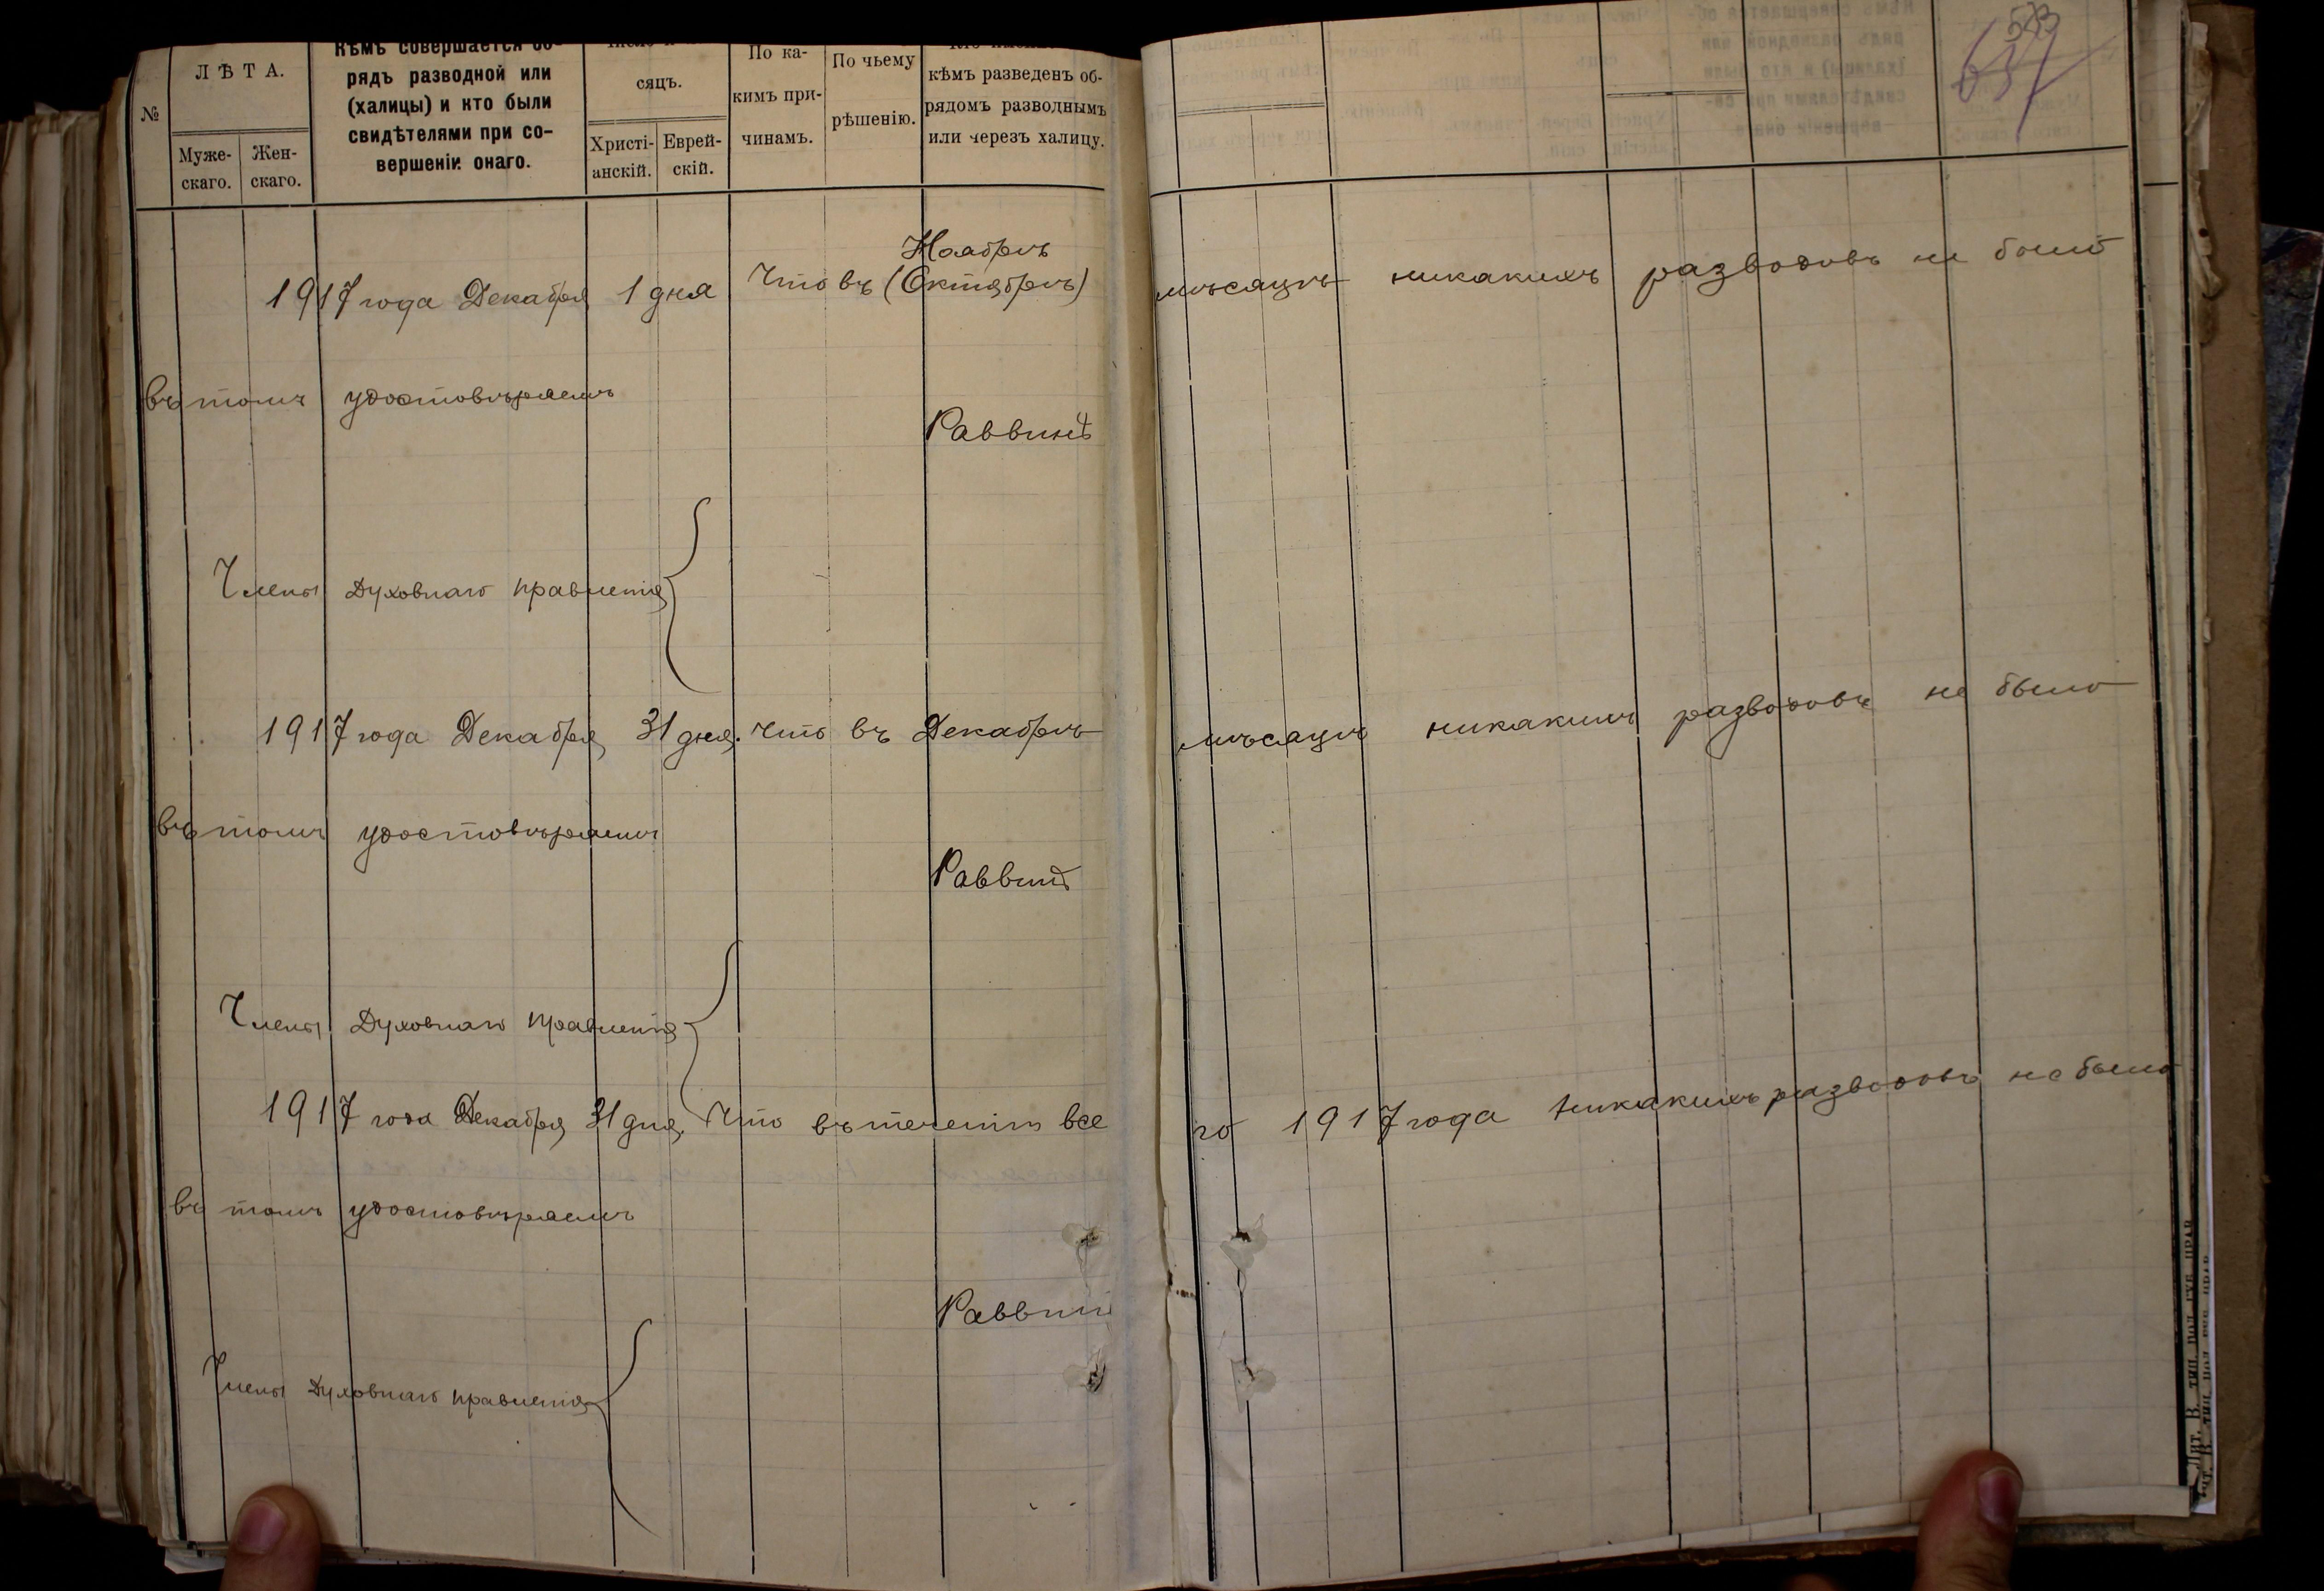 №
ЛѢТА.
Муже-
скаго.
Жен-
скаго.
Кѣмъ совершается об-
рядъ разводной или
(халицы) и кто были
свидѣтелями при со-
вершеніи онаго.
сяцъ.
Христі-
анскій.
Еврей-
скій.
По ка-
кимъ при-
чинамъ.
По чьему
рѣшенію.
кѣмъ разведенъ об-
рядомъ разводнымъ
или черезъ халицу.
Ноабрѣ
1917 года Декабря 1 дня Что въ (Октябрѣ) мѣсяцѣ никакихъ разводовъ не было
въ томъ удостовѣряемъ
Раввинъ
Члены Духовнаго правленія
1917 года Декабря 31 дня. что въ Декабрѣ мѣсяцѣ никакихъ разводовъ не было
въ томъ удостовѣряемъ
Раввинъ
Члены Духовнаго правленія
1917 года Декабря 31 дня, Что въ теченіи все го 1917 года никакихъ разводовъ не было
въ томъ удостовѣряемъ
Раввинъ
Члены Духовнаго правленія